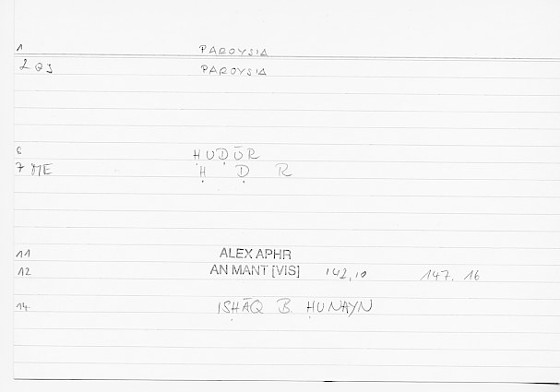 1 PAROYSIA
2 QJ PAROYSIA
6 ḤUḌŪR
7 ME Ḥ Ḍ R
11 ALEX APHR
12 AN MANT [VIS] 142,10 147. 16
14 ISḤĀQ B ḤUNAYN